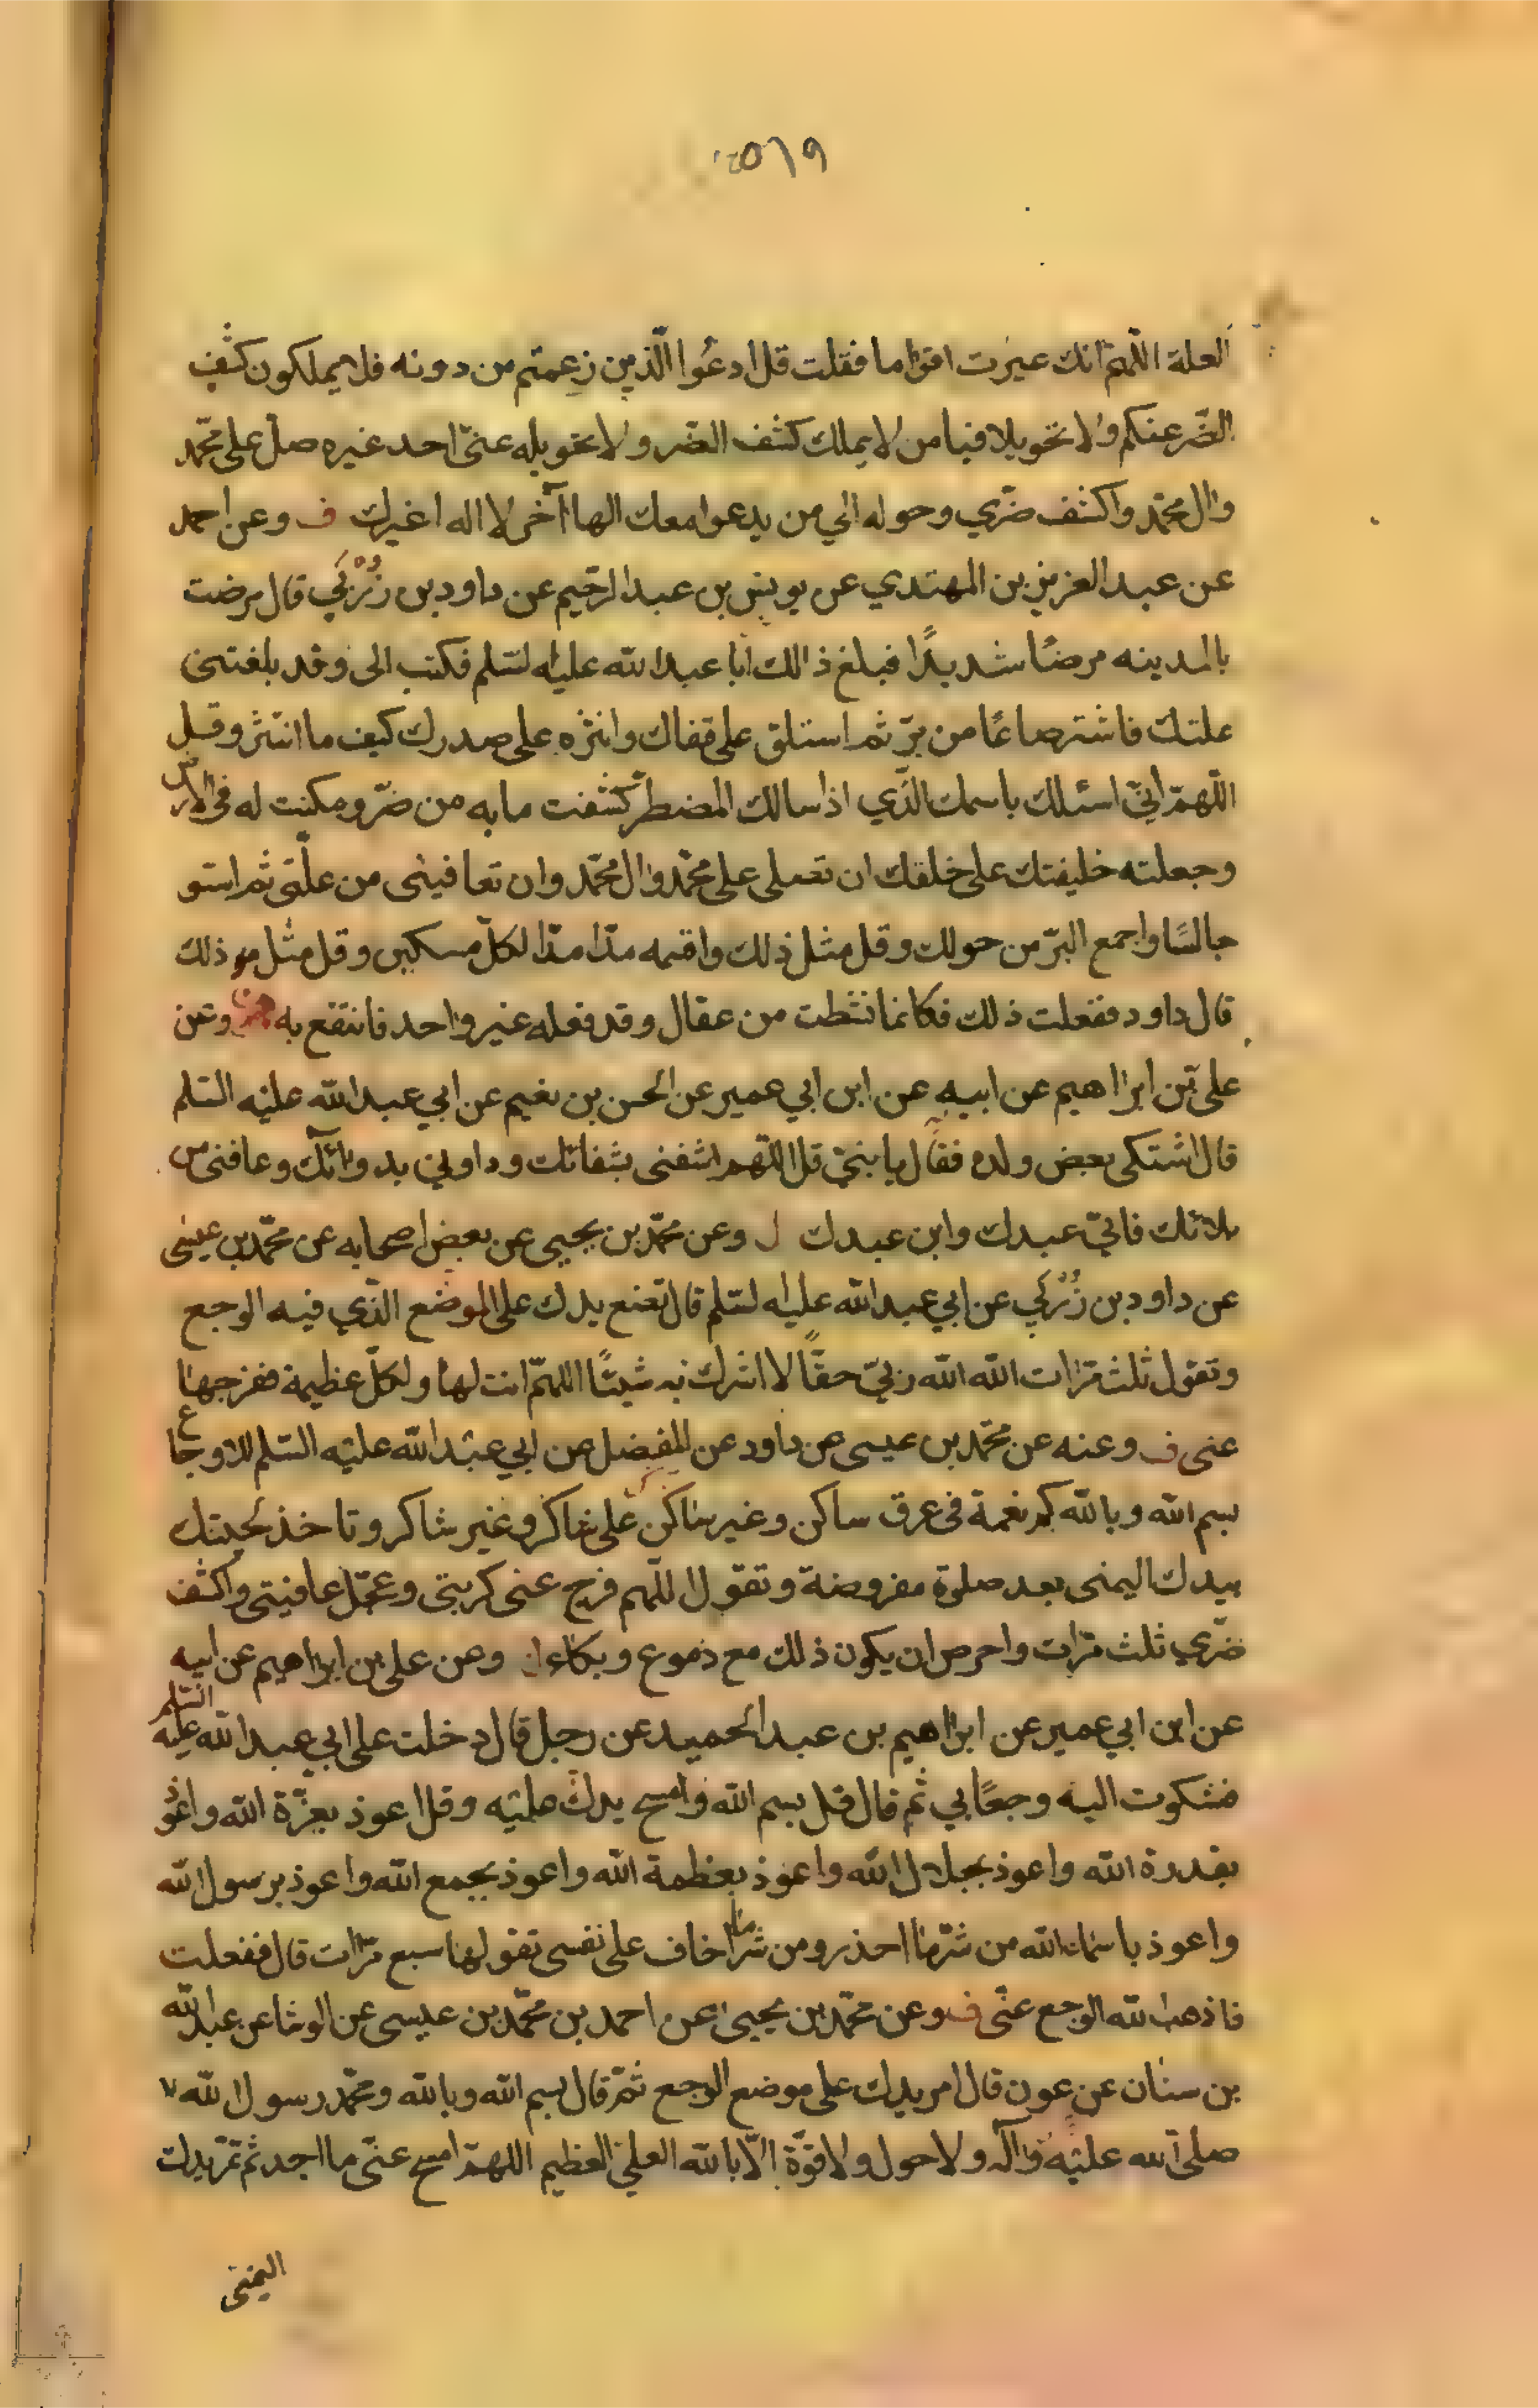 العلة اللهم انك عيرت اقواما فقلت قل ادعوا الذين زعمتم من دونه فلا يملكون كشف
الضر عنكم ولا تحويلا فيا من لا يملك كشف الضر ولا تحويله عني احد غيره صل على محمد
وال محمد واكشف ضري وحوله الي من يدعوا معك الها آخر لا اله غيرك ف وعن احمد
عن عبد العزيز بن المهتدي عن يونس بن عبد الرحيم عن داود بن زُرْبي قال مرضت
بالمدينه مرضًا شديدًا فبلغ ذالك ابا عبد الله عليه السلم فكتب الى وقد بلغتنى
علتك فاشتر صاعًا من برّ ثم استلق على قفاك وانثره على صدرك كيف ما انتثر وقل
اللّهمّ انيّ اسئلك باسمك الذّي اذا سالك المضطر كشفت ما به من ضرّ ومكنت له في الارض
وجعلته خليفتك على خلقك ان تصلى على محمّد وال محمّد وان تعافينى من علّتى ثم استو
جالسًا واجمع البرّ من حولك وقل مثل ذلك واقسمه مدّا مدّا لكلّ مسكين وقل مثل ذلك
قال داود ففعلت ذلك فكانما نشطت من عقال وقد فعله غير واحد فانتفع به وعن
على بن ابراهيم عن ابيه عن ابن ابي عمير عن الحسن بن نعيم عن ابي عبد الله عليه السّلم
قال اشتكى بعض ولده فقال يا بنيّ قل اللّهم اشفنى بشفائك وداوني بدوائك وعافنى من
بلائك فانيّ عبدك وابن عبدك ل وعن محمّد بن يحيى عن بعض اصحابه عن محمّد بن عيسى
عن داود بن زُرْبي عن ابي عبد الله عليه السلم قال تضع يدك على الموضع الذّي فيه الوجع
وتقول ثلث مرّات الله الله الله ربيّ حقًّا لا اشرك به شيئًا اللهمّ انت لها ولكلّ عظيمة ففرجها
عنى ف وعنه عن محمّد بن عيسى عن داود عن المفضل عن ابي عبد الله عليه السّلم للاوجاع
بسم الله وبالله كم نعمة في عرق ساكن وغير ساكن على شاكر وغير شاكر وتاخذ لحيتك
بيدك اليمنى بعد صلوة مفروضة وتقول اللّهم فرج عنى كربتى وعجّل عافيتى واكشف
ضرّي ثلث مرّات واحرص ان يكون ذلك مع دموع وبكاء وعن على بن ابراهيم عن ابيه
عن ابن ابي عمير عن ابراهيم بن عبد الحميد عن رجل قال دخلت على ابي عبد الله عليه السّلم
فشكوت اليه وجعًا بي ثم قال قل بسم الله وامسح يدك عليه وقل اعوذ بعزّة الله واعوذ
بقدرة الله واعوذ بجلال الله واعوذ بعظمة الله واعوذ بجمع الله واعوذ برسول الله
واعوذ باسماء الله من شرّ ما احذر ومن شرّ ما اخاف على نفسى تقولها سبع مرّات قال ففعلت
فاذهب الله الوجع عنّى ف وعن محمّد بن يحيى عن احمد بن محمّد بن عيسى عن الوشا عن عبد الله
بن سنان عن عون قال امر يدك على موضع الوجع ثمّ قال بسم الله وبالله ومحمّد رسول الله
صلى الله عليه وآله ولا حول ولا قوّة الّا بالله العليّ العظيم اللهمّ امسح عنّى ما اجد ثم تمرّ يدك
اليمنى